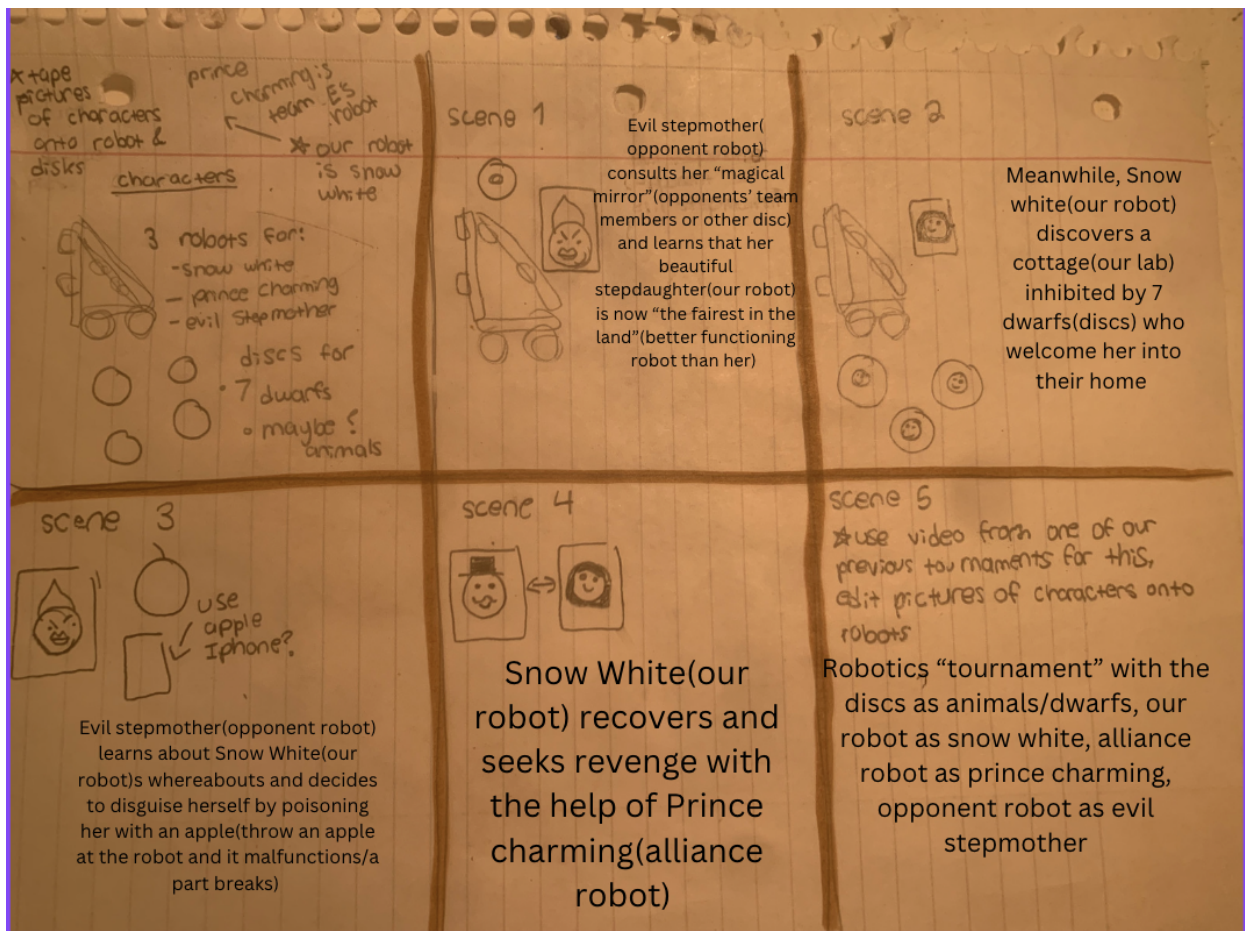 ☆ tape
pictures
of characters
onto robot &
disks
prince
charming is
team E's
robot
☆ our robot
is snow
white
characters
3 robots for:
-snow white
- prince charming
- evil stepmother
discs for
• 7 dwarfs
• maybe ?
animals
scene 1
Evil stepmother(
opponent robot)
consults her “magical
mirror”(opponents’ team
members or other disc)
and learns that her
beautiful
stepdaughter(our robot)
is now “the fairest in the
land”(better functioning
robot than her)
scene 2
Meanwhile, Snow
white(our robot)
discovers a
cottage(our lab)
inhibited by 7
dwarfs(discs) who
welcome her into
their home
scene 3
use
apple
Iphone?
Evil stepmother(opponent robot)
learns about Snow White(our
robot)s whereabouts and decides
to disguise herself by poisoning
her with an apple(throw an apple
at the robot and it malfunctions/a
part breaks)
scene 4
Snow White(our
robot) recovers and
seeks revenge with
the help of Prince
charming(alliance
robot)
scene 5
☆use video from one of our
previous tournaments for this,
edit pictures of characters onto
robots
Robotics “tournament” with the
discs as animals/dwarfs, our
robot as snow white, alliance
robot as prince charming,
opponent robot as evil
stepmother